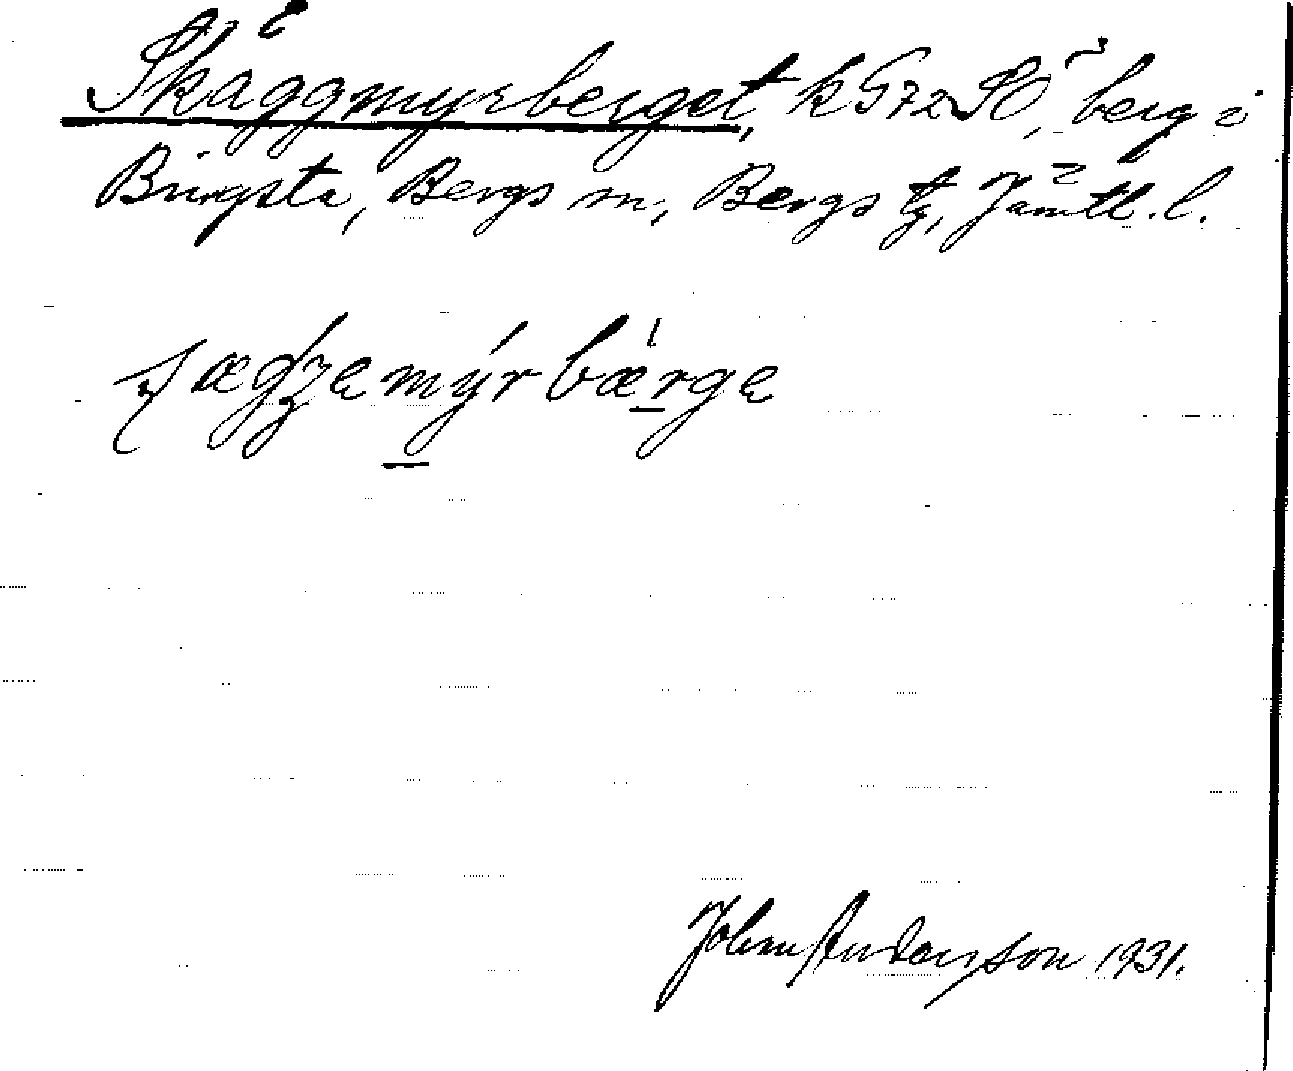 Skäggmyrberget, k G72SO, berg i
Bringsta, Bergs sn, Bergs tg, Jämtl. l.
ʃægʒəmýrbærgə
John Andersson 1931.